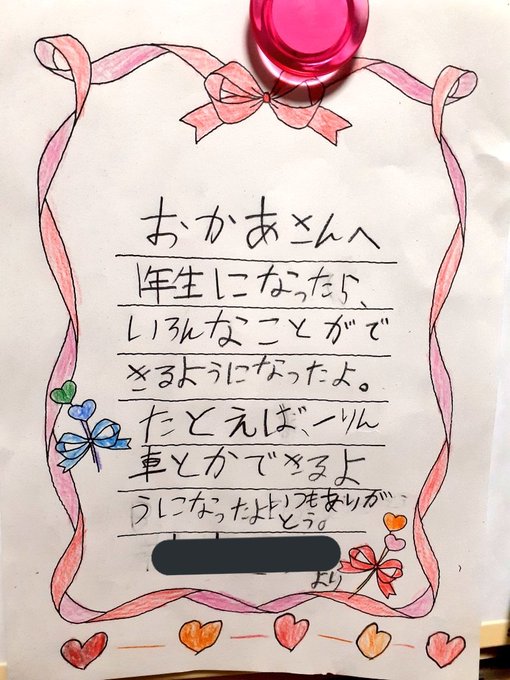 おかあさんへ
1年生になったら、
いろんなことがで
きるようになったよ。
たとえば、一りん
車とかできるよ
うになったよ!いつもありが
とう。
より